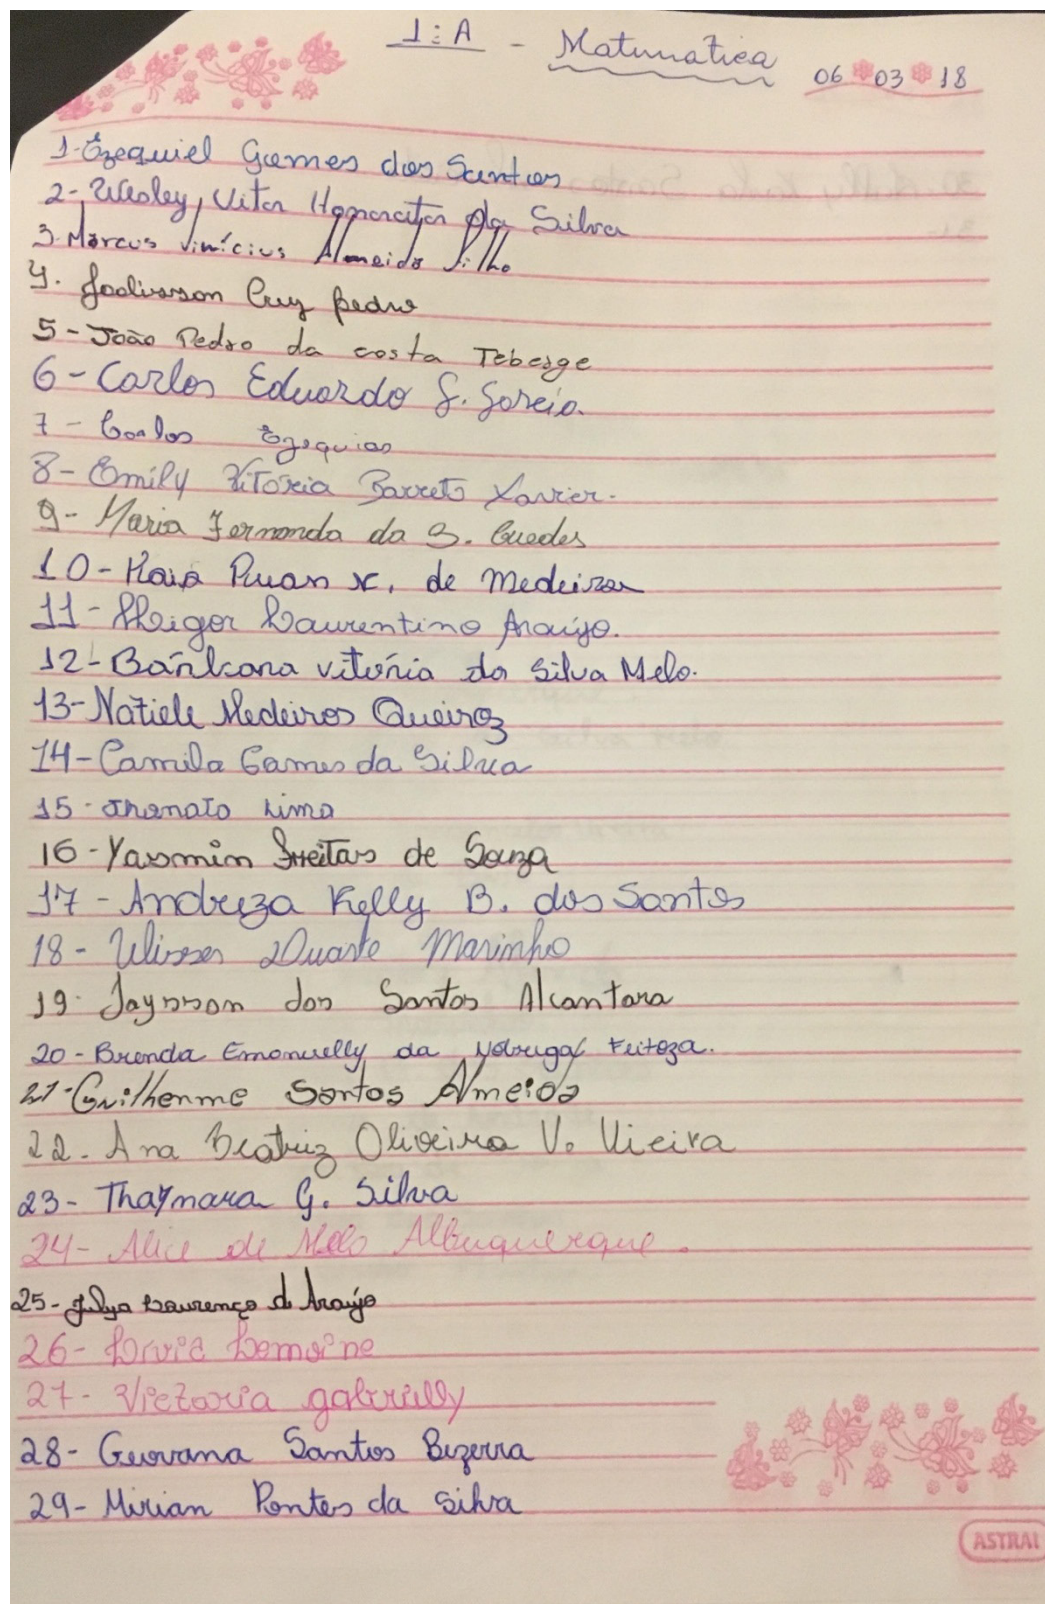 1ºA - Matematica
06 03 18
1-Ezequiel Gomes dos Santos
2-Wesley Vitor da Silva
3-Marcus Vinícius Almeida Filho
4. Cruz Pedro
5-João Pedro da costa Teberge
6-Carlos Eduardo S.
7-Carlos Ezequias
8-Emily Vitória Barreto Xavier.
9-Maria Fernanda da S. Guedes
10-Kaio Ruan x. de Medeiros
11- Laurentino Araújo.
12- vitória da Silva Melo.
13-Natiele Medeiros Queiroz
14-Camila Gomes da Silva
15- Lima
16-Yasmin Freitas de Souza
17-Andreza Kelly B. dos Santos
18-Ulisses Duarte Marinho
19- Jaysson dos Santos Alcantara
20-Brenda Emanuelly da Feitoza.
21-Guilherme Santos Almeida
22-Ana Beatriz Oliveira V. Vieira
23-Thaynara G. Silva
24-Alice de Melo Albuquerque.
25-Julya Lourenço d Araújo
26- Lemoine
27-Victoria gabrielly
28-Geovana Santos Bezerra
29-Mirian Pontes da Silva
ASTRAL